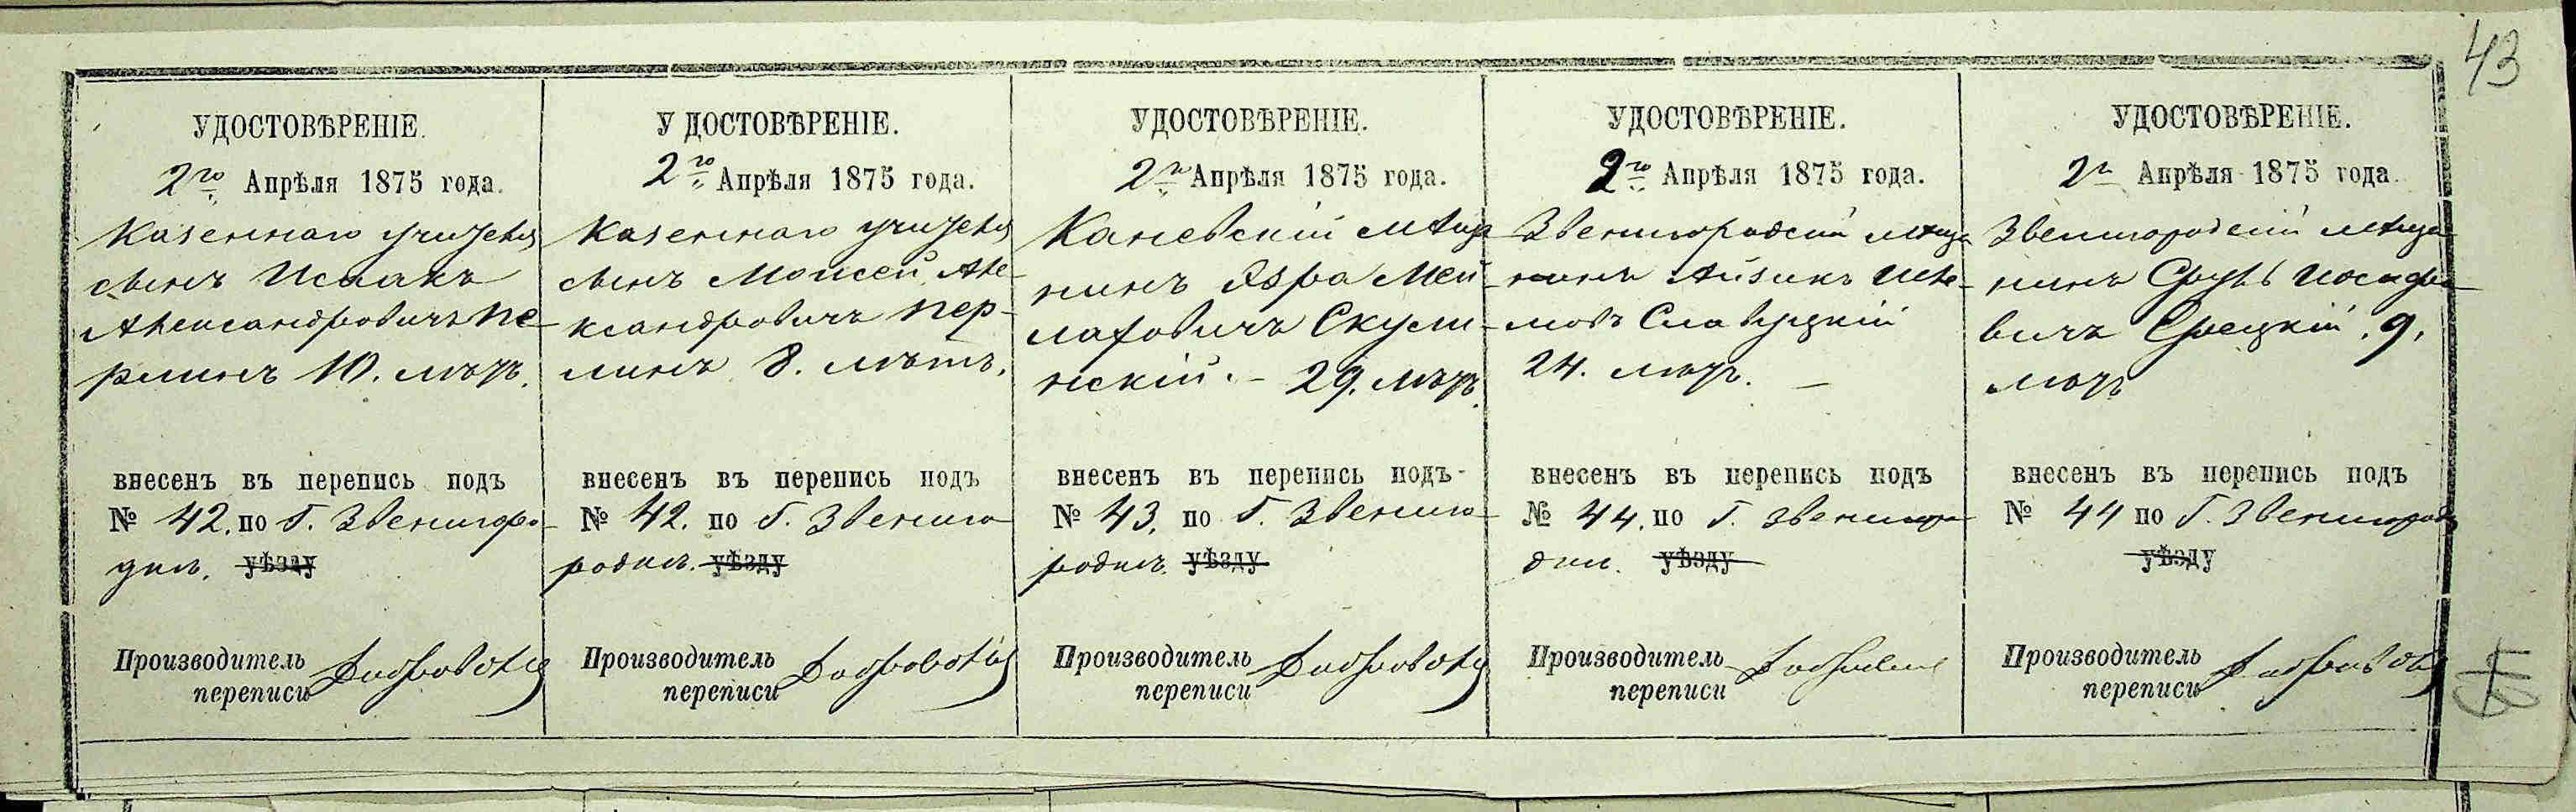 43
УДОСТОВѢРЕНІЕ.
2го Апрѣля 1875 года.
Казеннаго учителя
сынъ Исаакъ
Александровичъ Пе-
рлинъ 10. лѣтъ.
внесенъ въ перепись подъ
№ 42. по г. Звенигоро-
дкѣ. уѣзду
Производитель
переписи
УДОСТОВѢРЕНІЕ.
2го Апрѣля 1875 года.
Казеннаго учителя
сынъ Моисей Але-
ксандровичъ Пер-
линъ 8. лѣтъ.
внесенъ въ перепись подъ
№ 42. по г. Звениго-
родкѣ. уѣзду
Производитель
переписи
УДОСТОВѢРЕНІЕ.
2го Апрѣля 1875 года.
Каневскій мѣща-
нинъ Эзра Мей-
лаховичъ
29. лѣтъ.
внесенъ въ перепись подъ
№ 43. по г. Звениго-
родкѣ. уѣзду
Производитель
переписи
УДОСТОВѢРЕНІЕ.
2го Апрѣля 1875 года.
Звенигородскій мѣща-
нинъ Айзикъ
24. лѣтъ. —
внесенъ въ перепись подъ
№ 44. по г. Звенигоро-
дкѣ. уѣзду
Производитель
переписи
УДОСТОВѢРЕНІЕ.
2г Апрѣля 1875 года.
Звенигородскій мѣща-
нинъ Сруль
вичъ 9.
лѣтъ
внесенъ въ перепись подъ
№ 44 по г.
уѣзду
Производитель
переписи